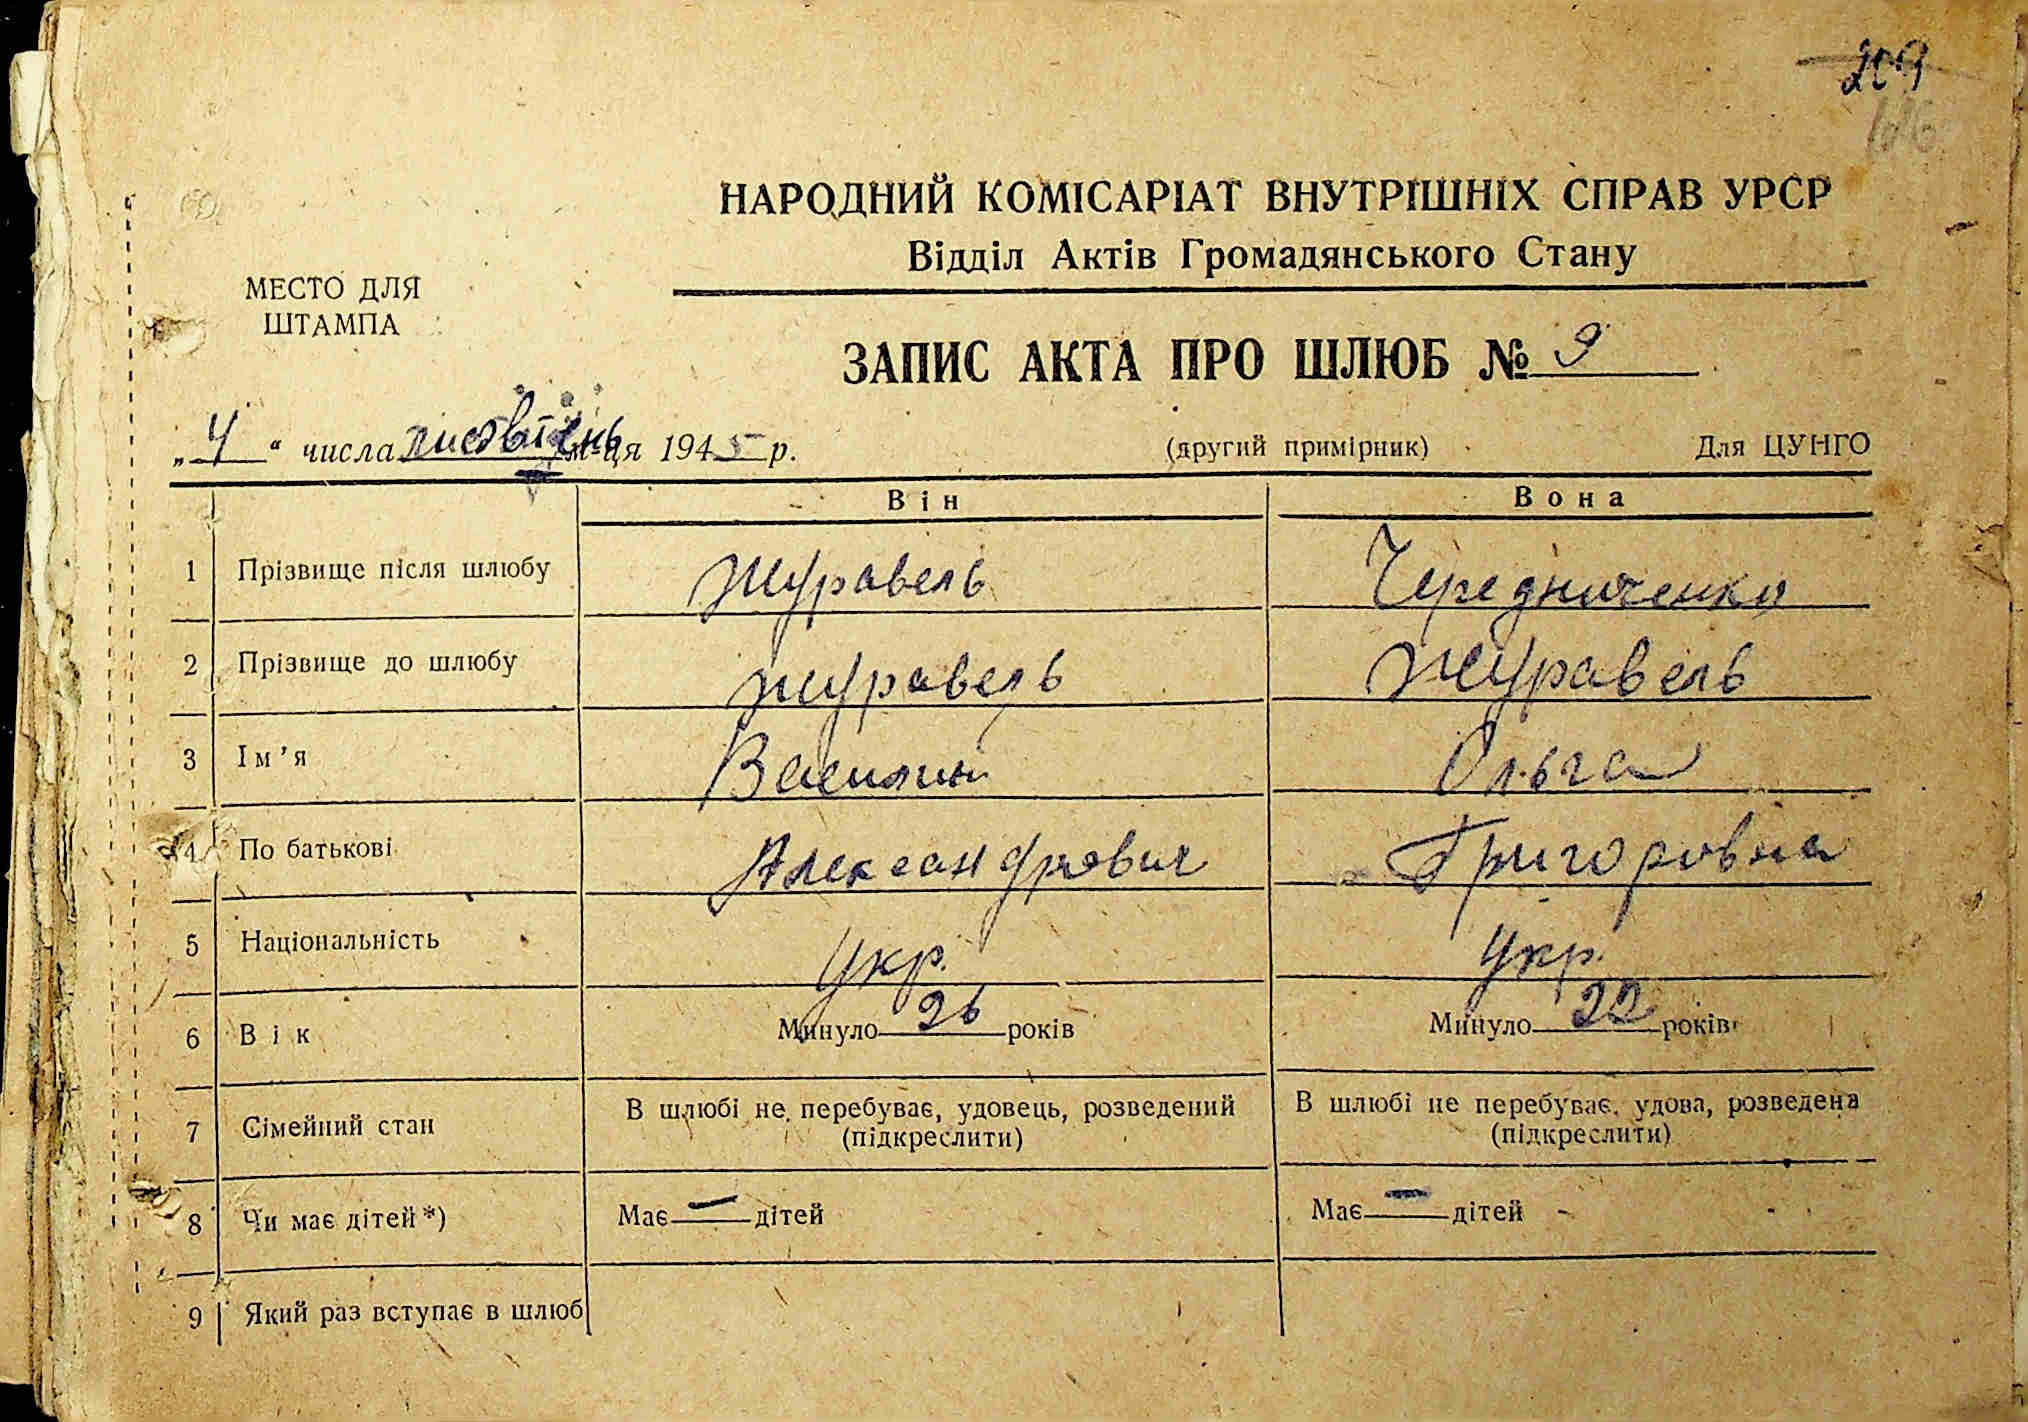 209
116
НАРОДНИЙ КОМІСАРІАТ ВНУТРІШНІХ СПРАВ УРСР
Відділ Актів Громадянського Стану
МЕСТО ДЛЯ
ШТАМПА
ЗАПИС АКТА ПРО ШЛЮБ № 9
„4“ числа м-ця 1945 р. (другий примірник) Для ЦУНГО
Він Вона
1 Прізвище після шлюбу Журавель Чередниченко
2 Прізвище до шлюбу Журавель Журавель
3 Ім'я Василий Ольга
4 По батькові Александрович Григоровна
5 Національність Укр. Укр.
6 Вік Минуло 26 років Минуло 22 років
7 Сімейний стан В шлюбі не перебуває, удовець, розведений В шлюбі не перебуває, удова, розведена
(підкреслити) (підкреслити)
8 Чи має дітей*) Має — дітей Має — дітей
9 Який раз вступає в шлюб